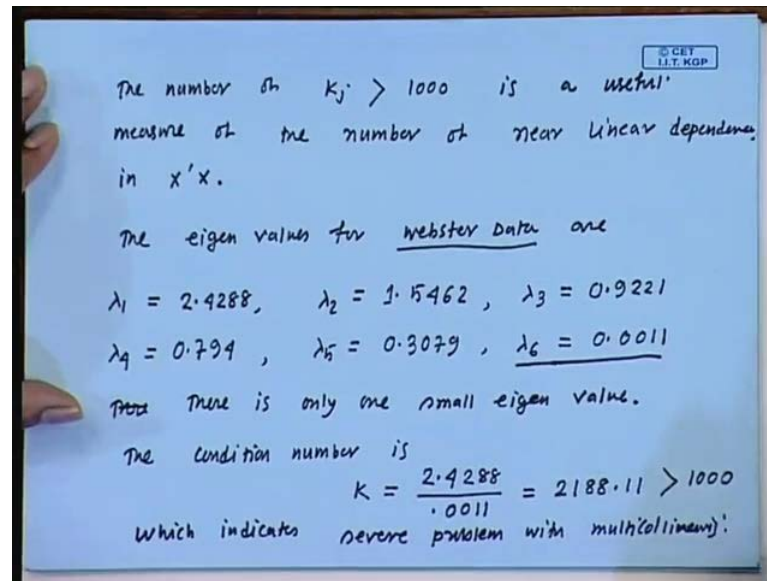 © CET
I.I.T. KGP
The number of Kj > 1000 is a useful
measure of the number of near linear dependence
in x'x.
The eigen values for Webster Data are
λ1 = 2.4288, λ2 = 1.5462, λ3 = 0.9221
λ4 = 0.794, λ5 = 0.3079, λ6 = 0.0011
There is only one small eigen value.
The condition number is
K = 2.4288 / .0011 = 2188.11 > 1000
Which indicates severe problem with multicollinearity.